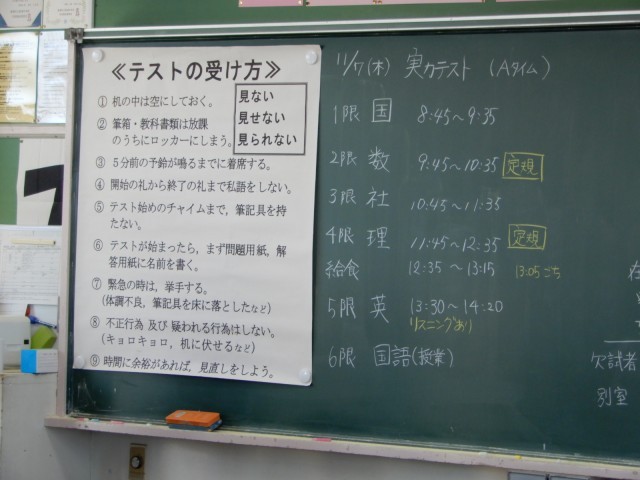 ≪テストの受け方≫
① 机の中は空にしておく。
② 筆箱・教科書類は放課
のうちにロッカーにしまう。
見ない
見せない
見られない
③ 5分前の予鈴が鳴るまでに着席する。
④ 開始の礼から終了の礼まで私語をしない。
⑤ テスト始めのチャイムまで，筆記具を持
たない。
⑥ テストが始まったら，まず問題用紙，解
答用紙に名前を書く。
⑦ 緊急の時は，挙手する。
(体調不良，筆記具を床に落としたなど)
⑧ 不正行為 及び 疑われる行為はしない。
(キョロキョロ，机に伏せるなど)
⑨ 時間に余裕があれば，見直しをしよう。
11/7(木) 実力テスト (Aタイム)
1限 国 8:45〜9:35
2限 数 9:45〜10:35 定規
3限 社 10:45〜11:35
4限 理 11:45〜12:35 定規
給食 12:35〜13:15 13:05ごち
5限 英 13:30〜14:20
リスニングあり
6限 国語(授業)
欠試者
別室